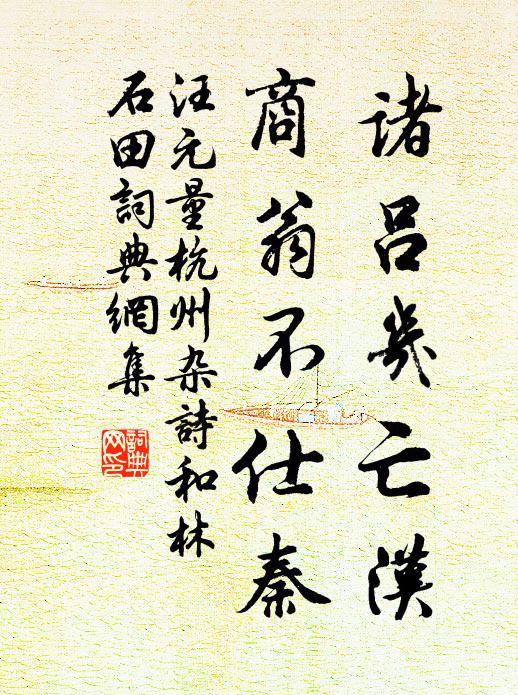 諸呂幾亡漢
商翁不仕秦
汪元量杭州杂詩和林
石田詞典網集
詞典网印